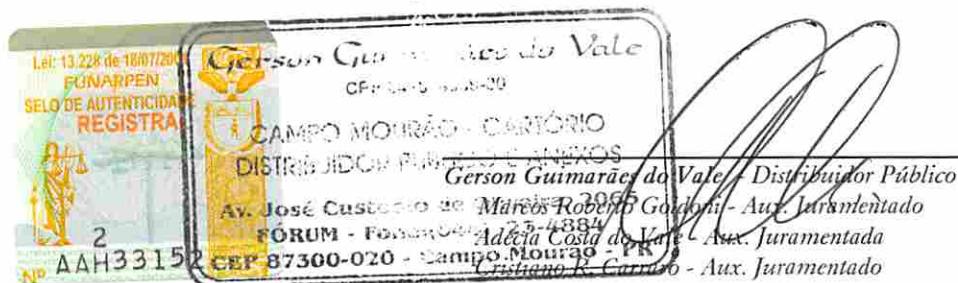 Lei: 13.228 de 18/07/200
FUNARPEN
SELO DE AUTENTICIDADE
REGISTRA
2
Nº AAH33152
Gerson Gui do Vale
CAMPO MOURÃO - CARTÓRIO
DISTRIBUIDOR PÚBLICO E ANEXOS
Av. José Custodio de 2065
FÓRUM - 23-4884
CEP 87300-020 - Campo Mourão - PR
Gerson Guimarães do Vale - Distribuidor Público
Marcos Roberto Goldoni - Aux. Juramentado
Adécia Costa do Vale - Aux. Juramentada
Cristiano R. Carraro - Aux. Juramentado